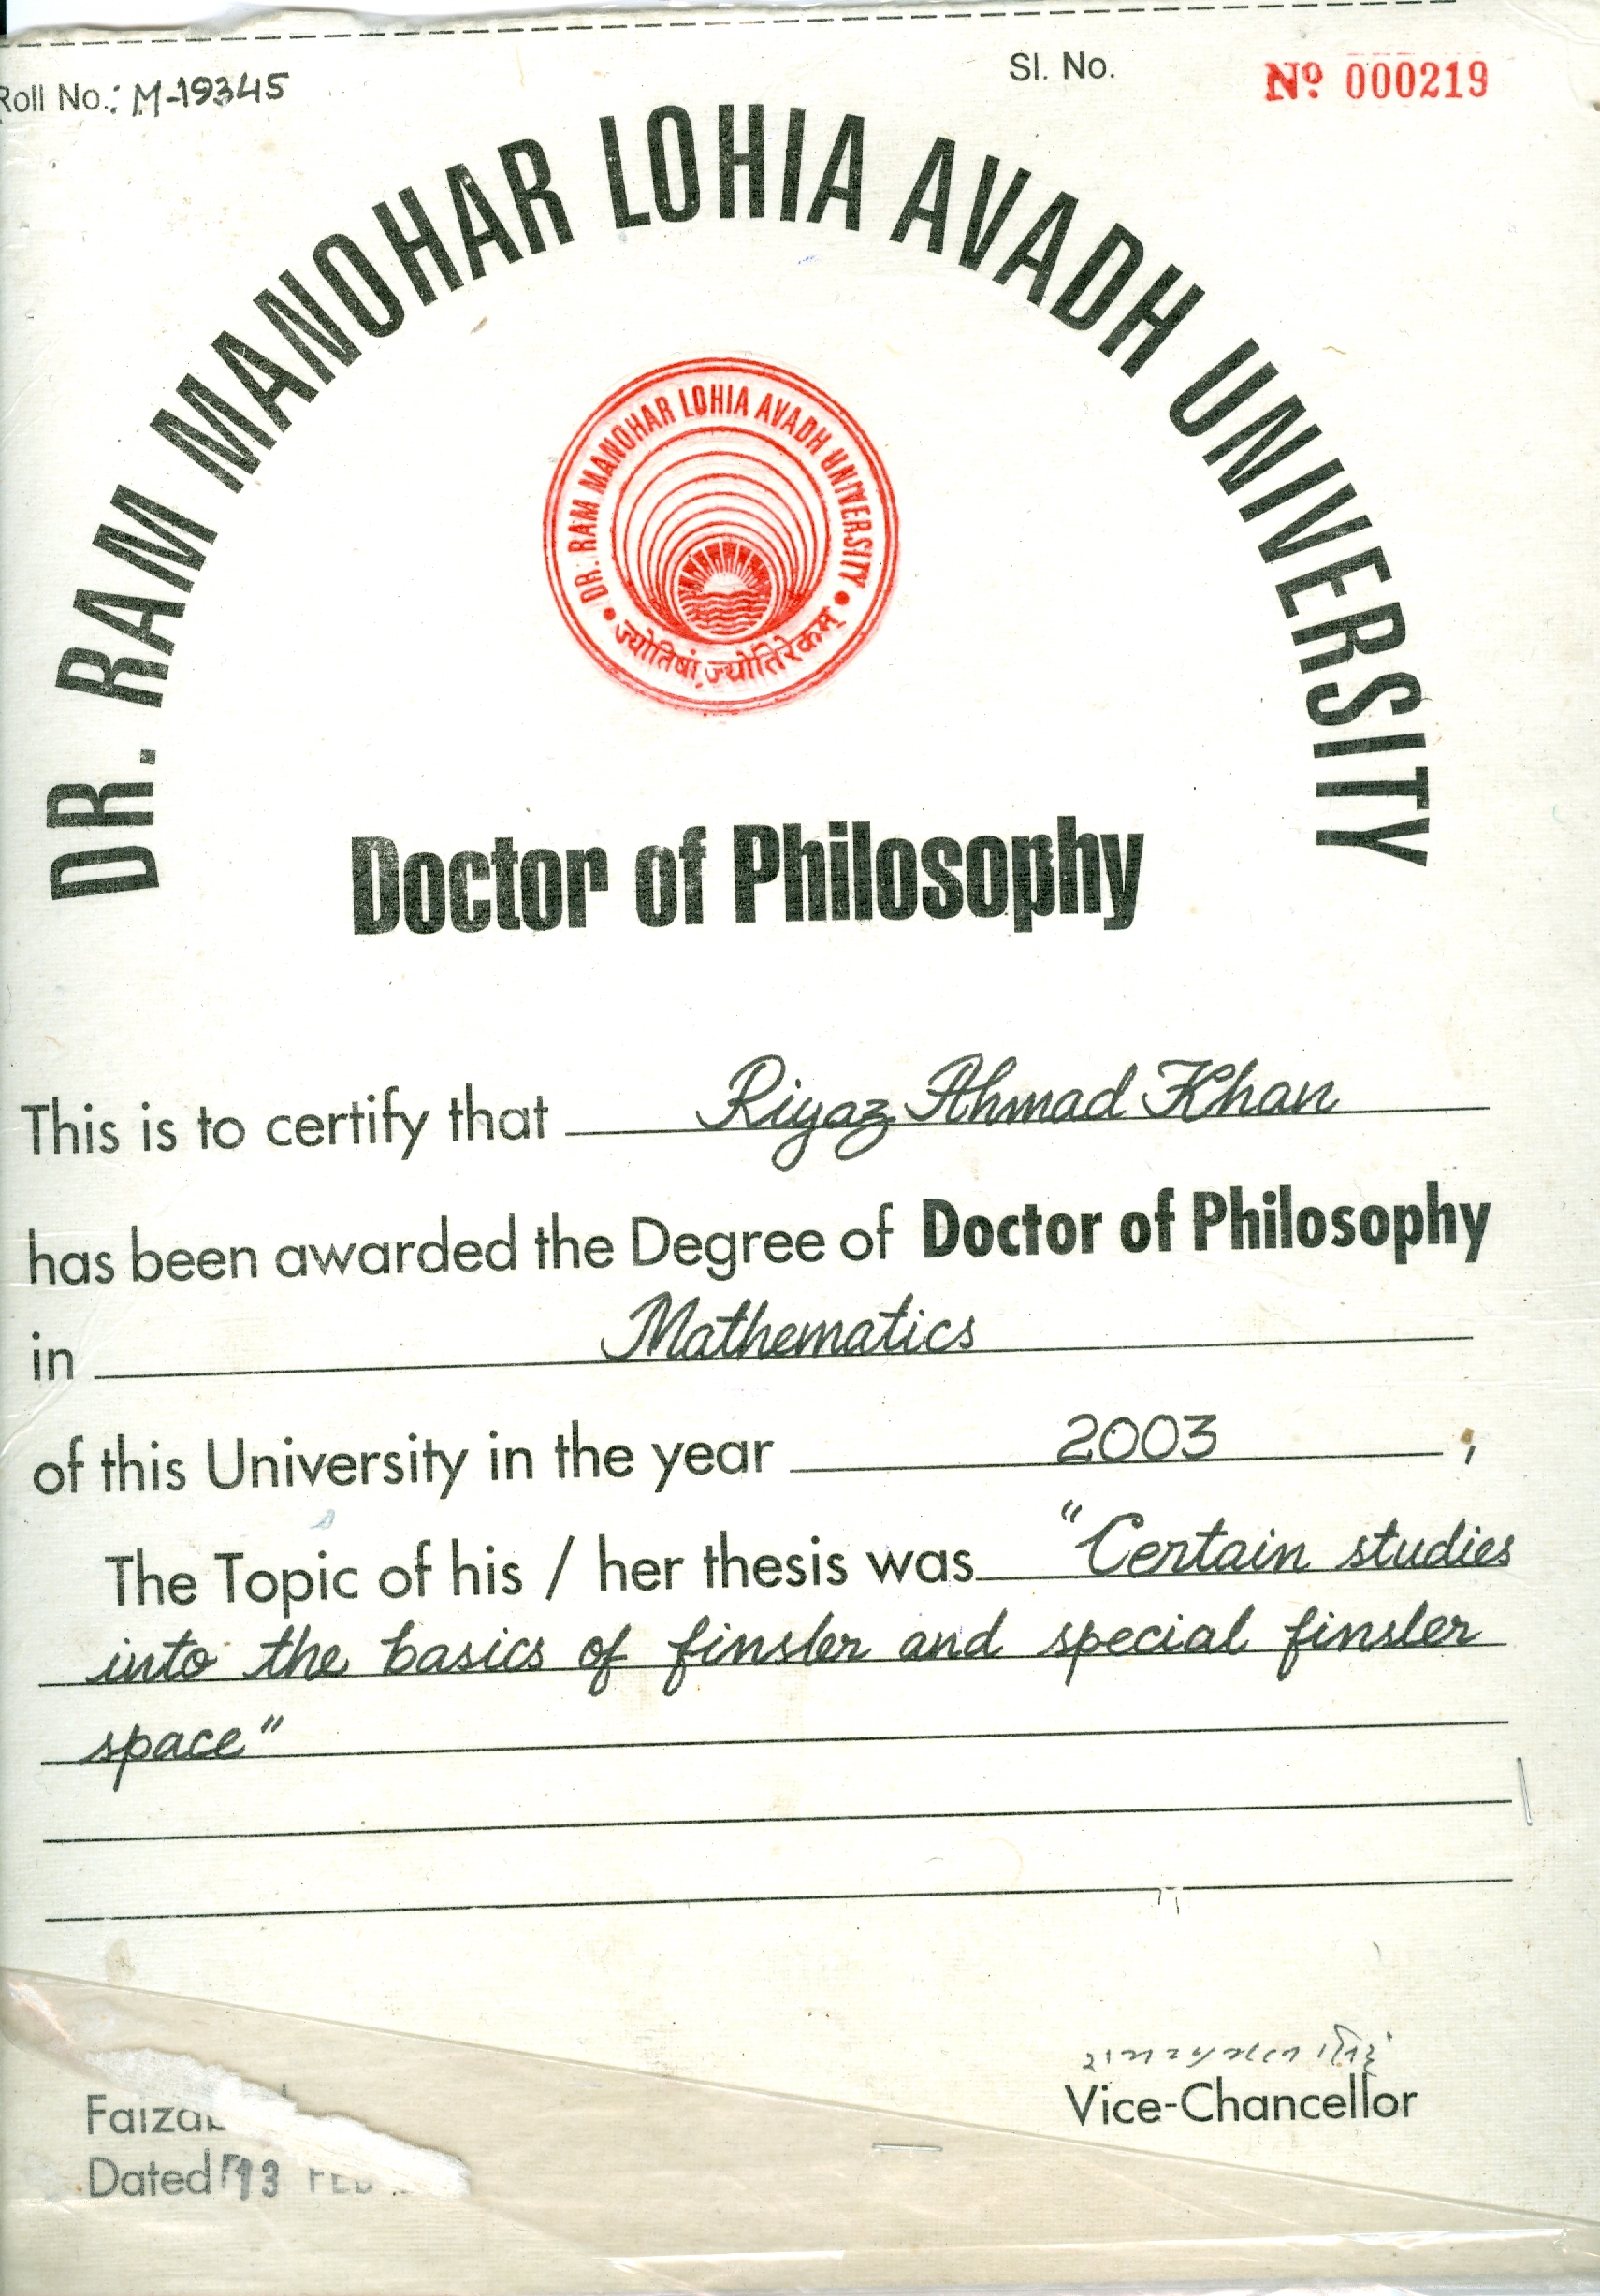 Roll No.: M-19345
Sl. No. Nº 000219
DR. RAM MANOHAR LOHIA AVADH UNIVERSITY
DR. RAM MANOHAR LOHIA AVADH UNIVERSITY
ज्योतिषां ज्योतिरेकम्
Doctor of Philosophy
This is to certify that Riyaz Ahmad Khan
has been awarded the Degree of Doctor of Philosophy
in Mathematics
of this University in the year 2003,
The Topic of his / her thesis was "Certain studies
into the basics of finsler and special finsler
space"
Vice-Chancellor
Dated 13 FEB